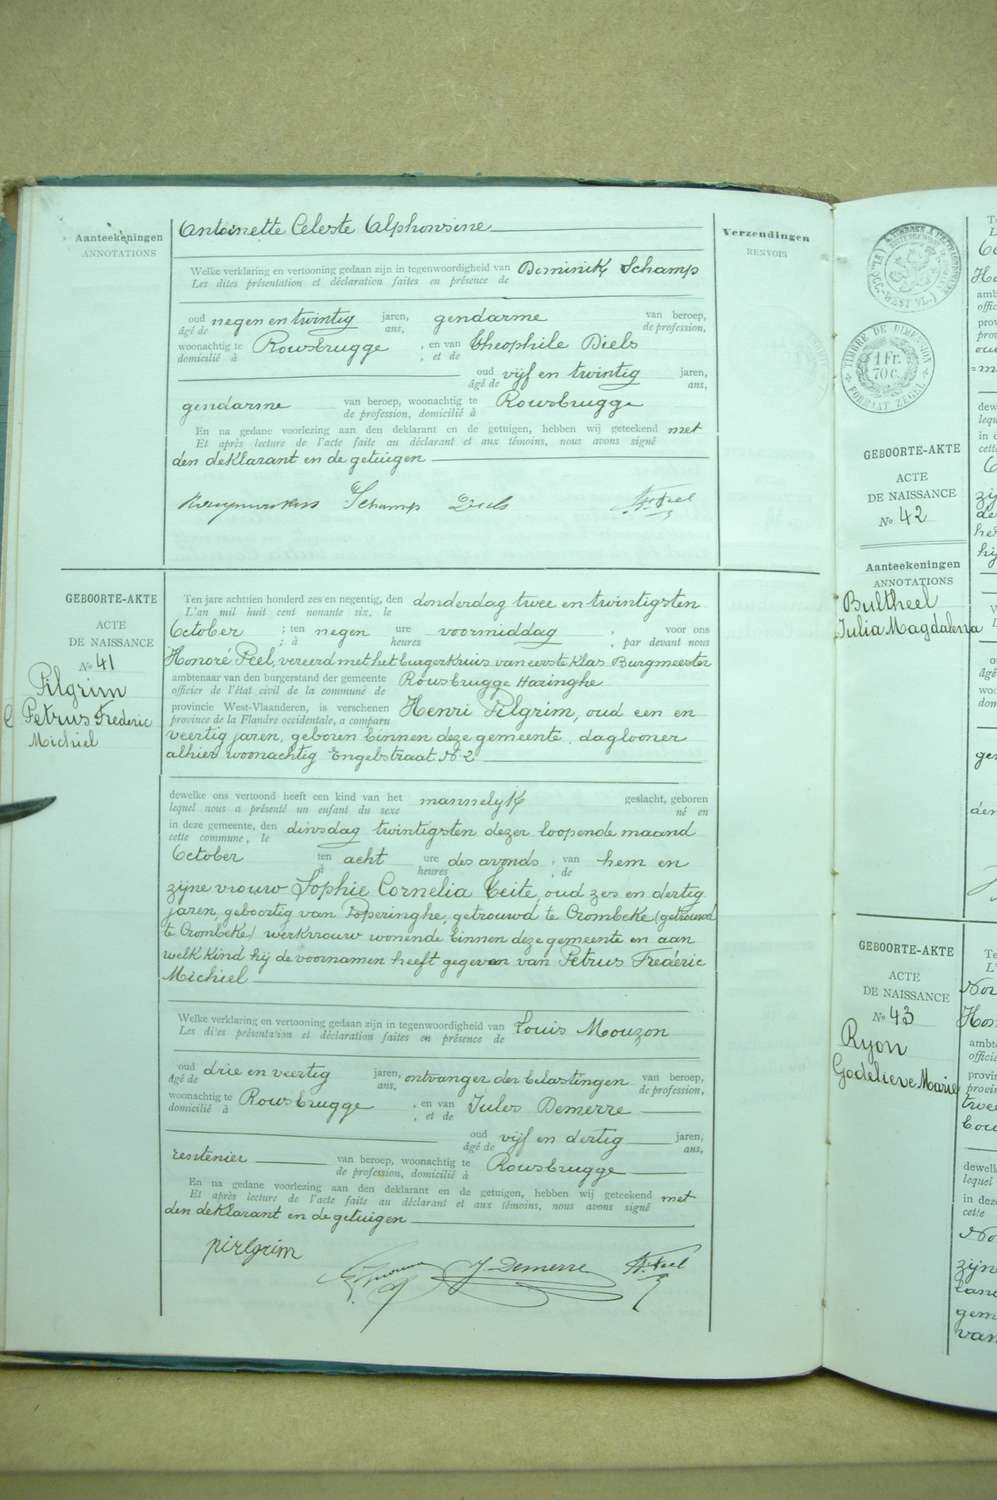 Aanteekeningen
ANNOTATIONS
Antoinette Celeste Alphonsine
Welke verklaring en vertooning gedaan zijn in tegenwoordigheid van Dominik Schamp
Les dites présentation et déclaration faites en présence de
oud negen en twintig jaren, gendarme van beroep,
âgé de ans, de profession,
woonachtig te Rousbrugge , en van Theophile Diels
domicilié à , et de
oud vijf en twintig jaren,
âgé de ans,
gendarme van beroep, woonachtig te Rousbrugge
de profession, domicilié à
En na gedane voorlezing aan den deklarant en de getuigen, hebben wij geteekend met
Et après lecture de l'acte faite au déclarant et aux témoins, nous avons signé
den deklarant en de getuigen
Schamp Diels H. Peel
GEBOORTE-AKTE
ACTE
DE NAISSANCE
No 41
Pilgrim
Petrus Frederic
Michiel
Ten jare achttien honderd zes en negentig, den donderdag twee en twintigsten
L'an mil huit cent nonante six, le
October ; ten negen ure voormiddag , voor ons
; à heures , par devant nous
Honoré Peel, vereerd met het burgerkruis van eerste klas Burgmeester
ambtenaar van den burgerstand der gemeente Rousbrugge Haringhe
officier de l'état civil de la commune de
provincie West-Vlaanderen, is verschenen Henri Pilgrim, oud een en
province de la Flandre occidentale, a comparu
veertig jaren, geboren binnen deze gemeente, daglooner
alhier woonachtig Engelstraat No 2
dewelke ons vertoond heeft een kind van het mannelyk geslacht, geboren
lequel nous a présenté un enfant du sexe né en
in deze gemeente, den dinsdag twintigsten dezer loopende maand
cette commune, le
October ten acht ure des avonds , van hem en
à heures , de
zijne vrouw Sophie Cornelia Teite, oud zes en dertig
jaren, geboortig van Poperinghe, getrouwd te Crombeke (getrouwd
te Crombeke) werkvrouw wonende binnen deze gemeente en aan
welk kind hij de voornamen heeft gegeven van Petrus Frederic
Michiel
Welke verklaring en vertooning gedaan zijn in tegenwoordigheid van Louis Mouzon
Les dites présentation et déclaration faites en présence de
oud drie en veertig jaren, ontvanger der belastingen van beroep,
âgé de ans, de profession,
woonachtig te Rousbrugge , en van Jules Demerre
domicilié à , et de
oud vijf en dertig jaren,
âgé de ans,
rentenier van beroep, woonachtig te Rousbrugge
de profession, domicilié à
En na gedane voorlezing aan den deklarant en de getuigen, hebben wij geteekend met
Et après lecture de l'acte faite au déclarant et aux témoins, nous avons signé
den deklarant en de getuigen
pirlgrim J. Demerre H. Peel
Verzendingen
RENVOIS
TIMBRE DE DIMENSION
1 Fr.
70 c.
FORMAAT ZEGEL
GEBOORTE-AKTE
ACTE
DE NAISSANCE
No 42
Aanteekeningen
ANNOTATIONS
Bultheel
Julia Magdalena
GEBOORTE-AKTE
ACTE
DE NAISSANCE
No 43
Ryon
Godelieve Marie